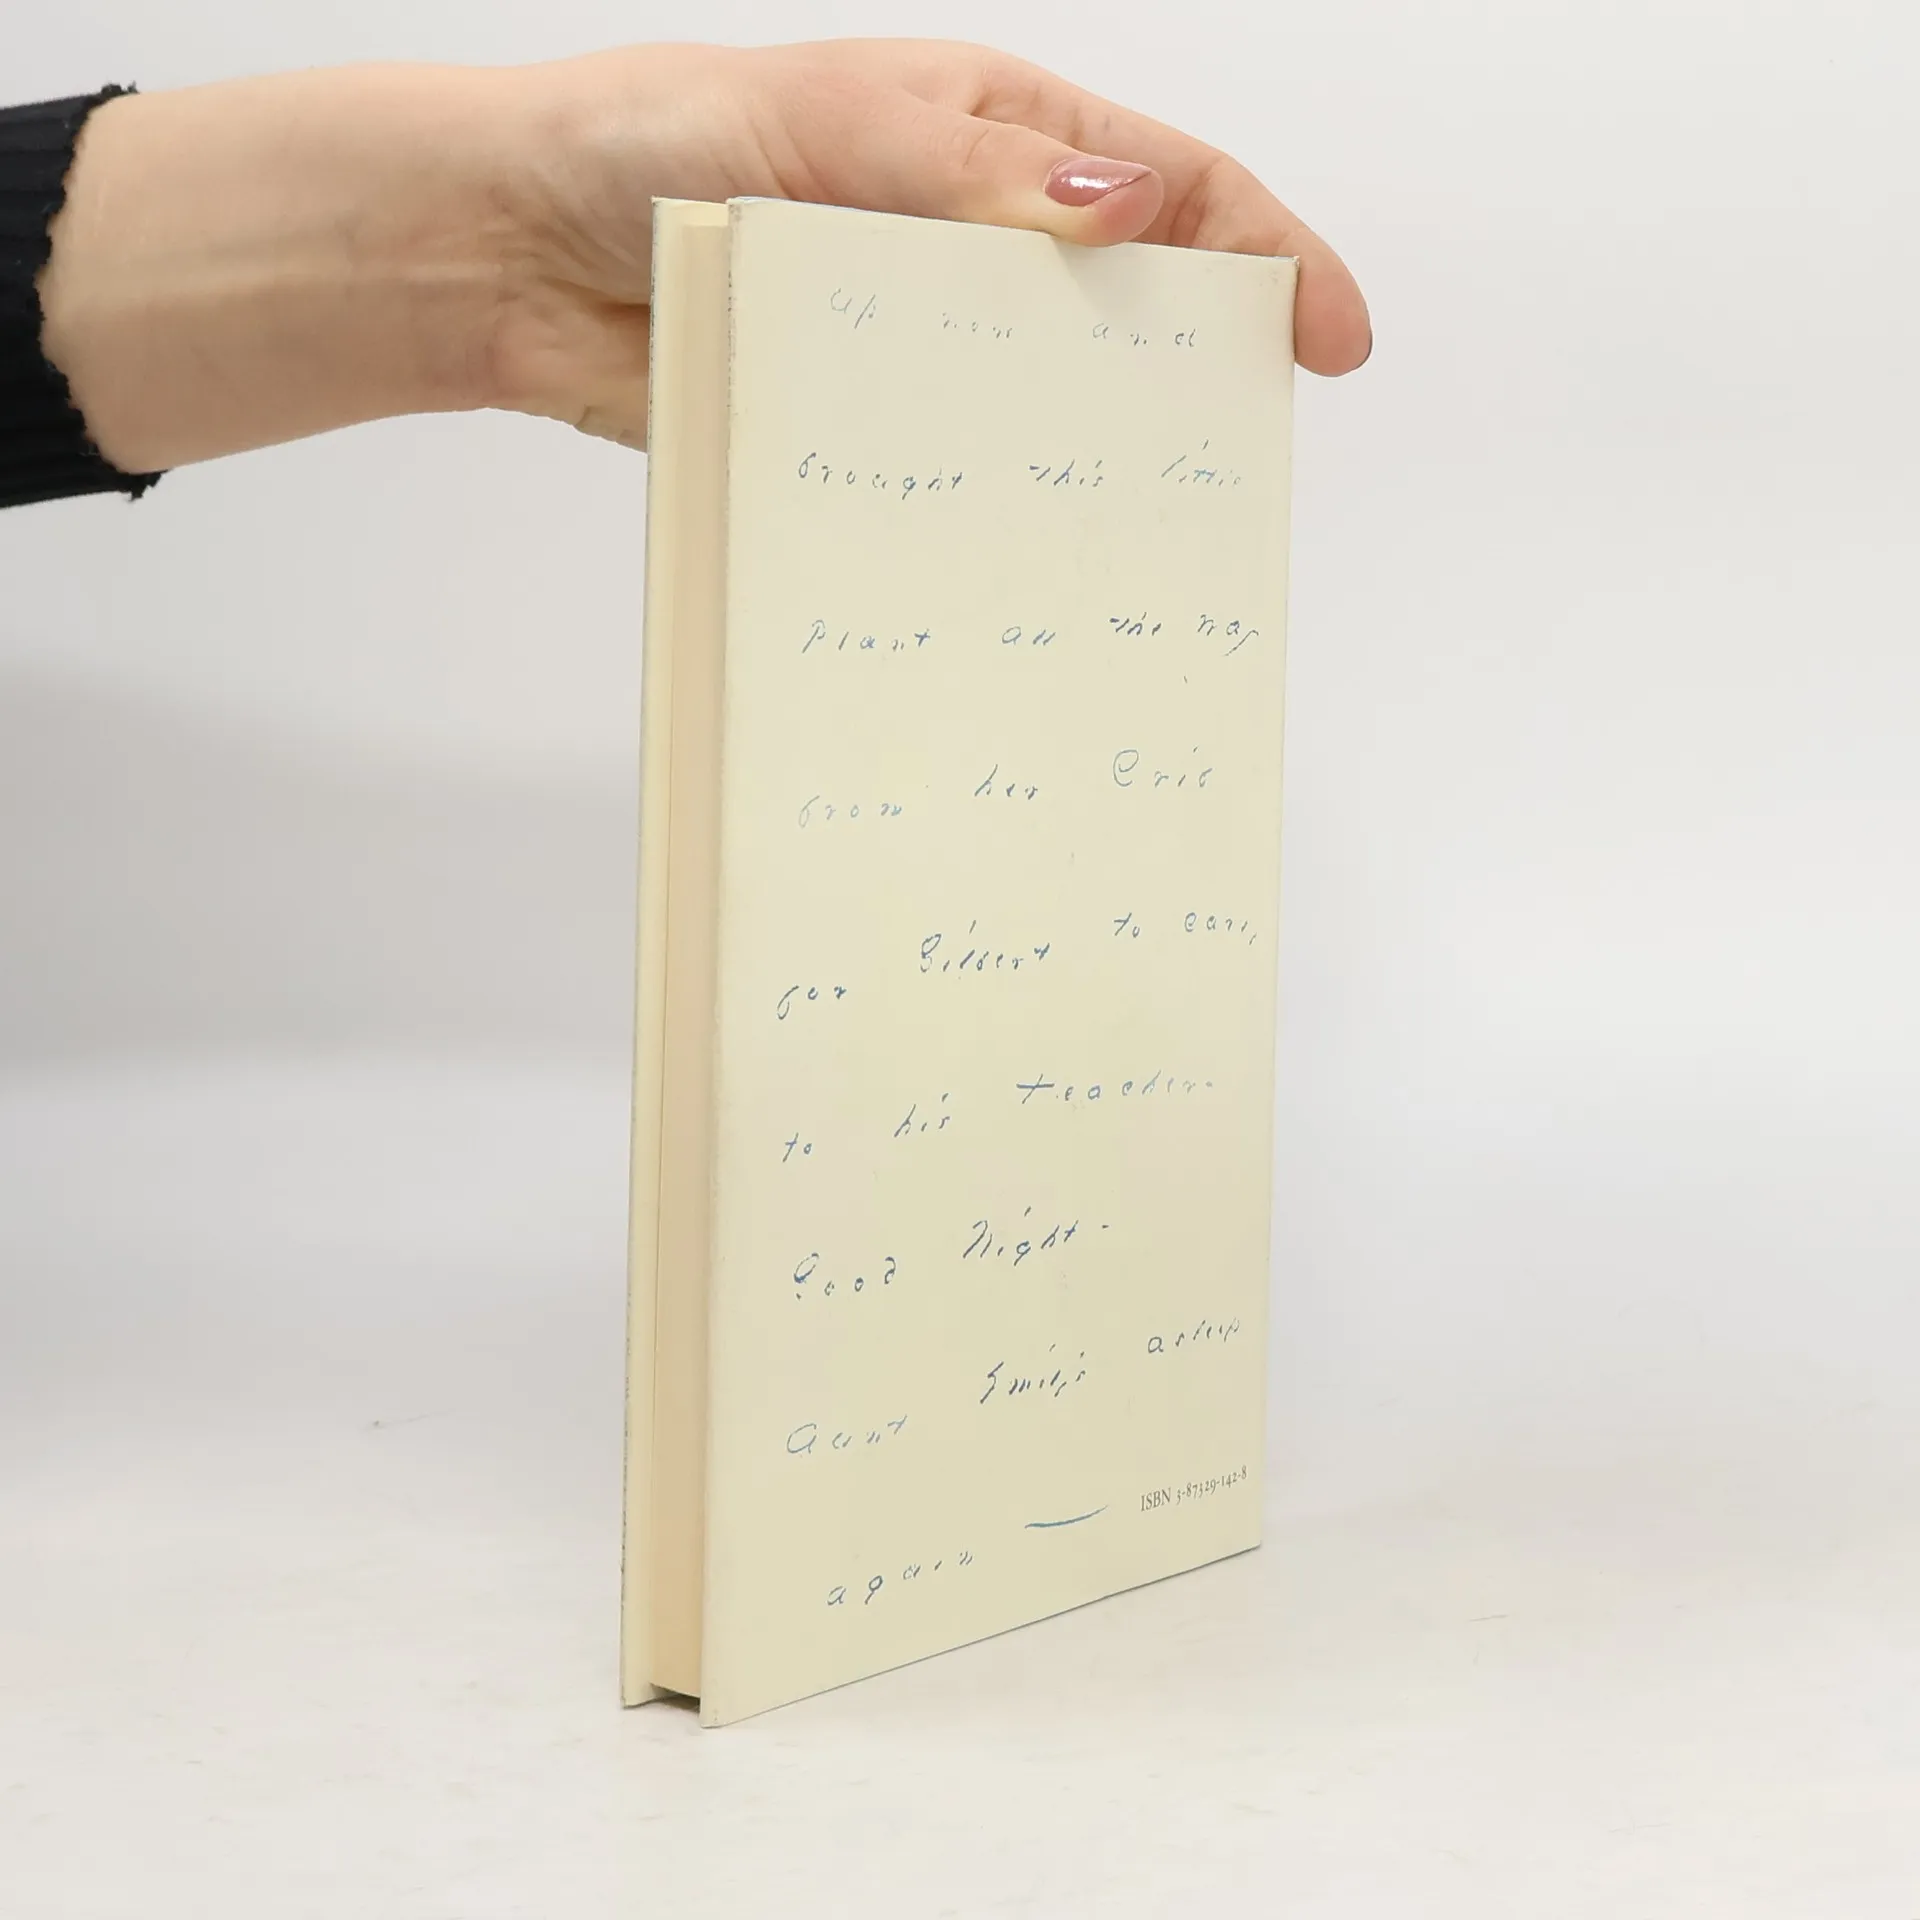 up now and
brought this little
Plant all the way
from her Crib
for Gilbert to carry
to his teacher-
Good Night -
Aunt Emily's asleep
again
ISBN 3-87329-142-8